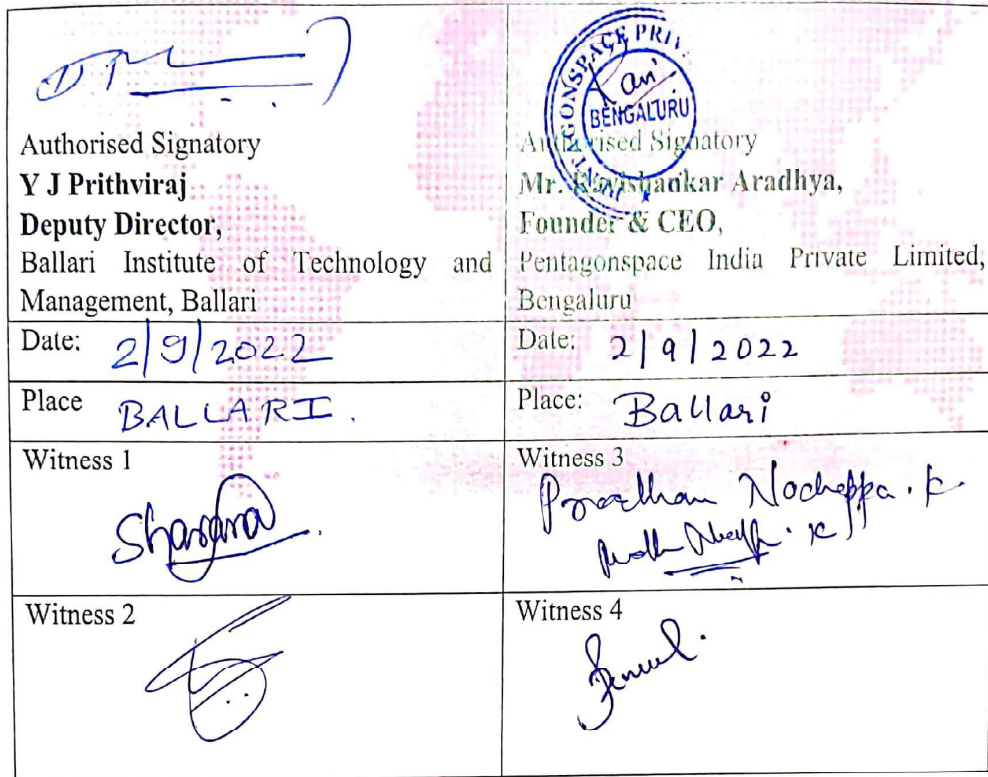 Authorised Signatory
Y J Prithviraj
Deputy Director,
Ballari Institute of Technology and
Management, Ballari
PRIV.
BENGALURU
Authorised Signatory
Mr. Ravishankar Aradhya,
Founder & CEO,
Pentagonspace India Private Limited,
Bengaluru
Date: 2/9/2022
Date: 2/9/2022
Place BALLARI.
Place: Ballari
Witness 1
Witness 3
Witness 2
Witness 4